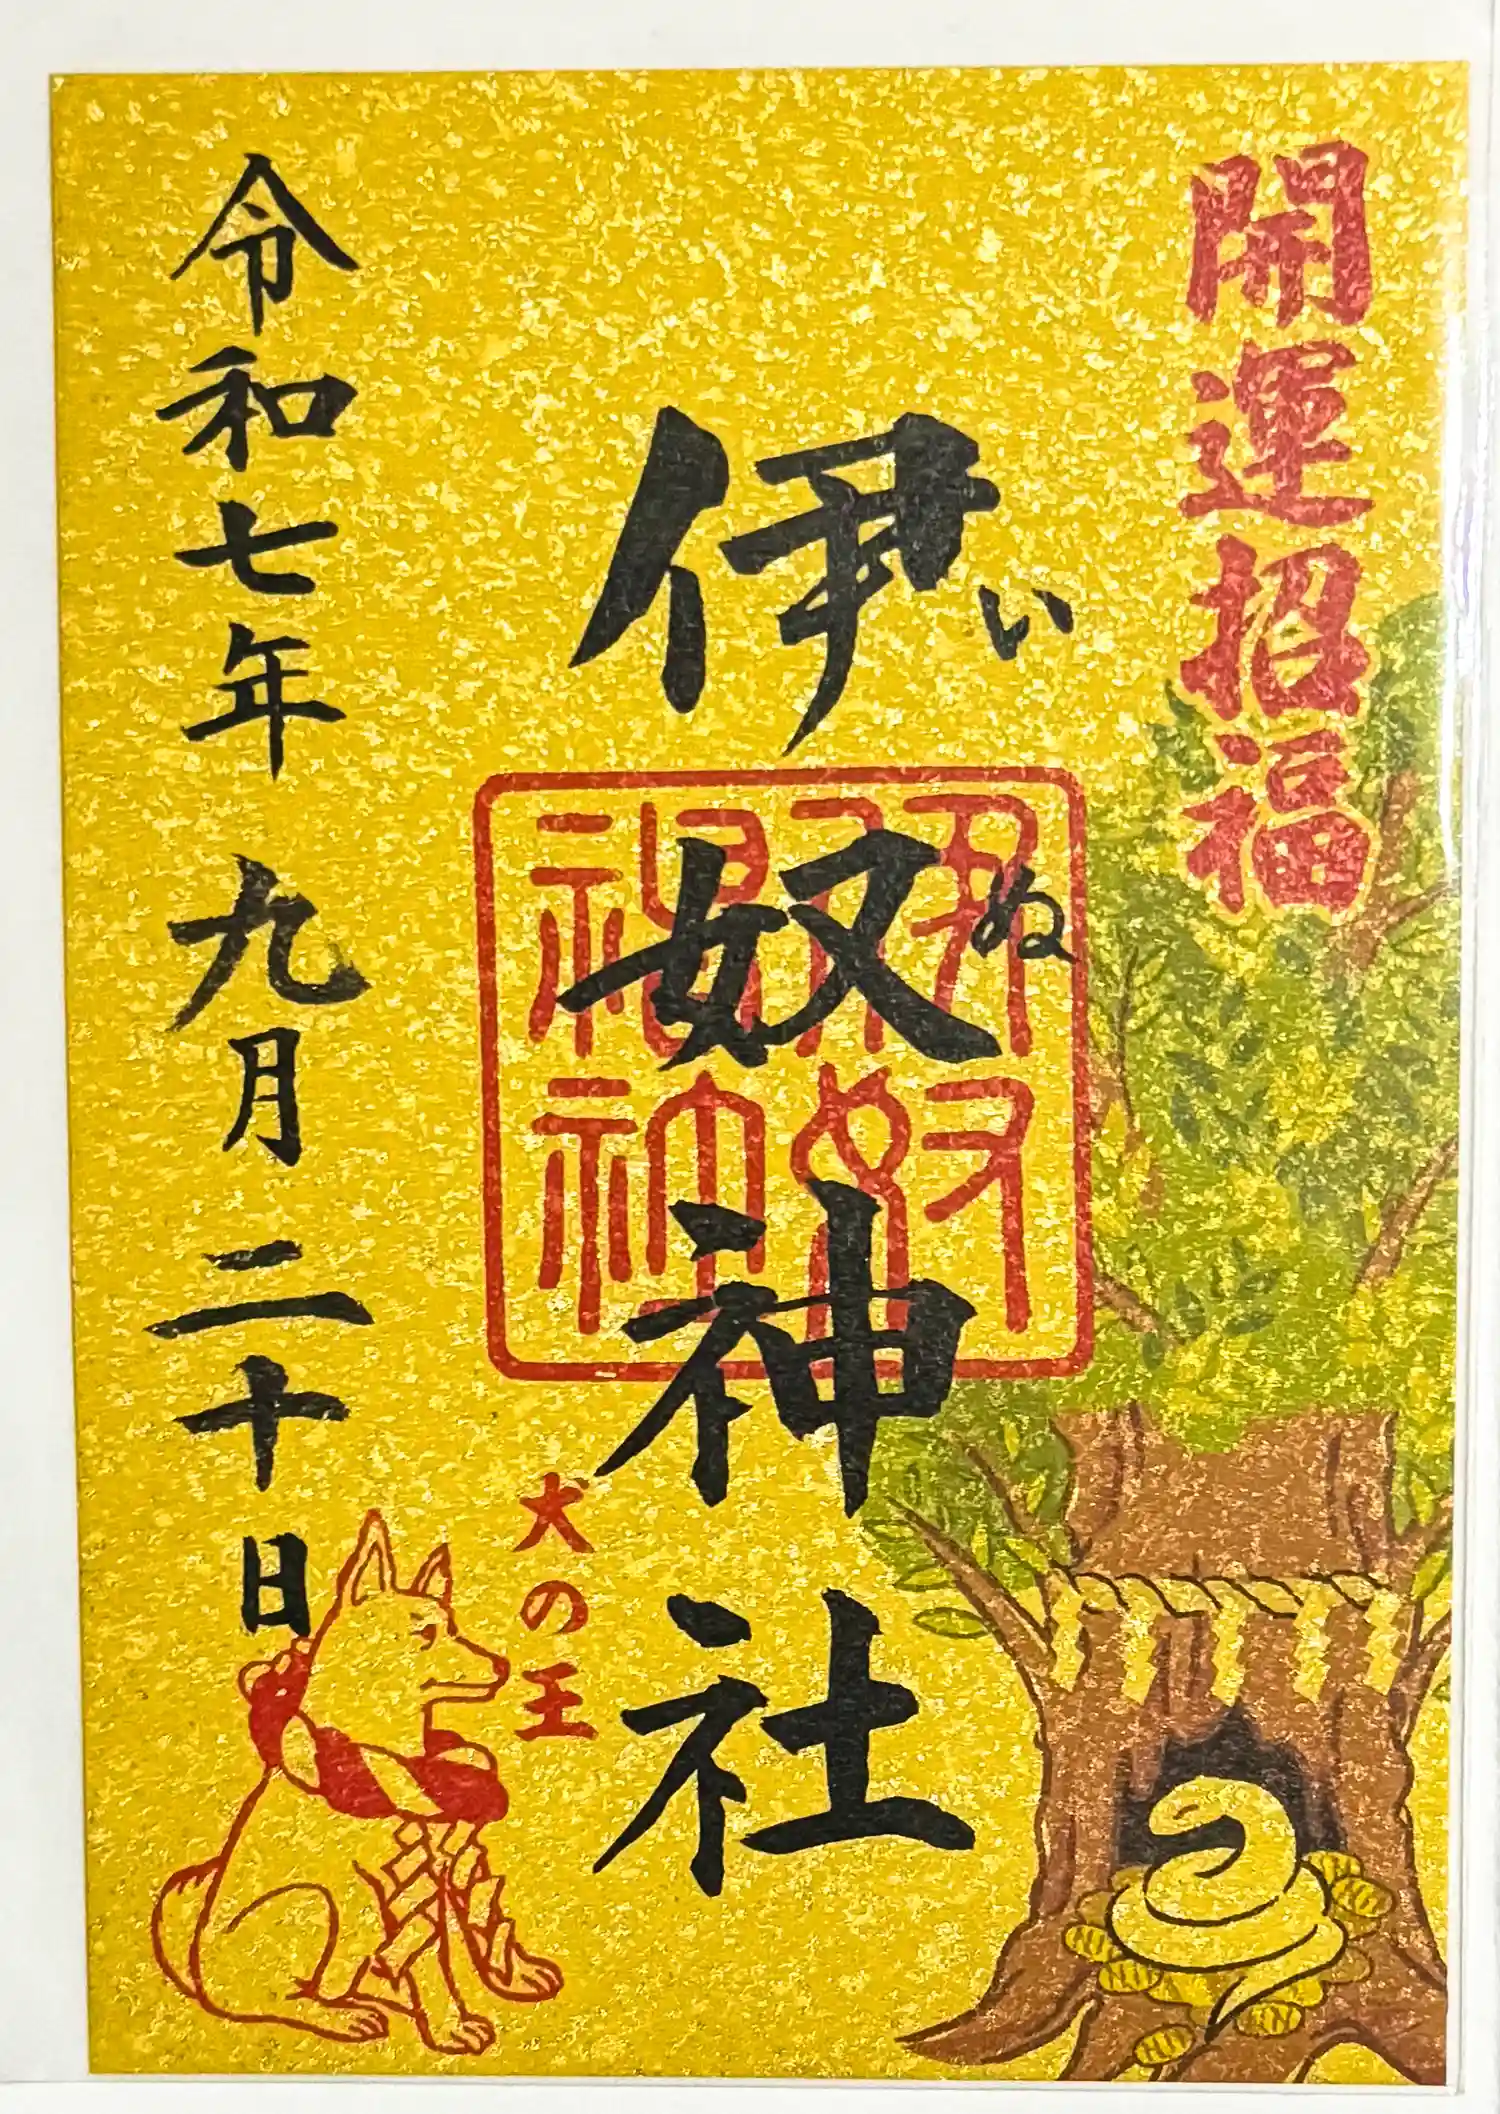 開運招福
伊奴神社
いぬ
伊奴神社
犬の王
令和七年 九月 二十日